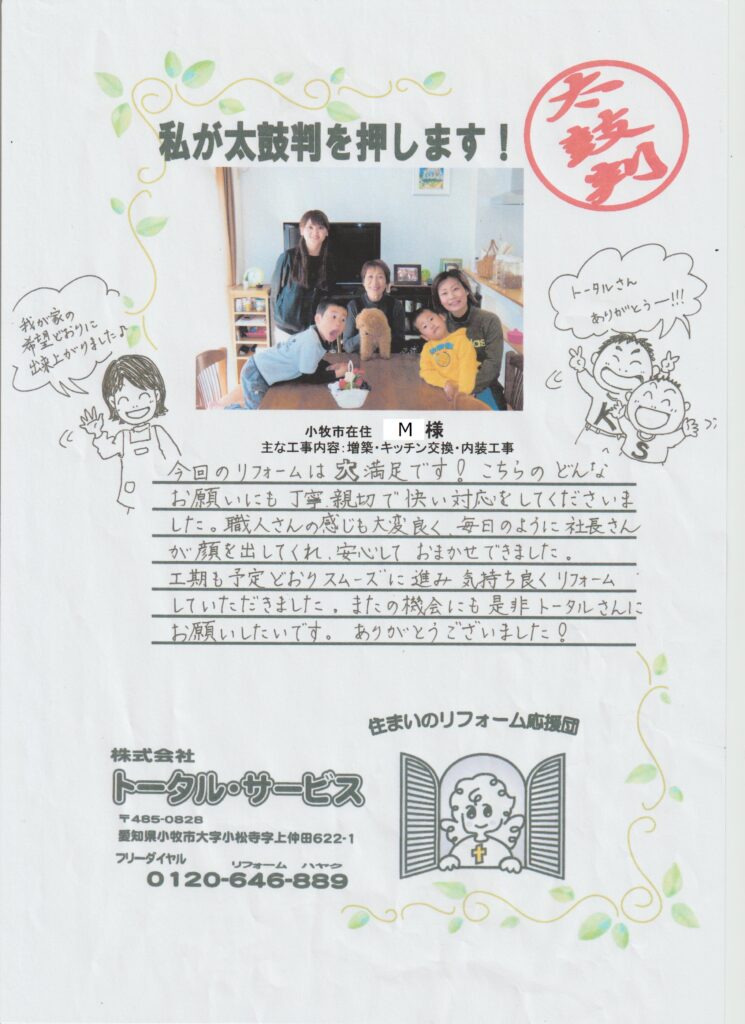 太鼓判
私が太鼓判を押します！
我が家の
希望どおりに
出来上がりました♪
トータルさん
ありがとうー!!!
K
S
小牧市在住 M 様
主な工事内容：増築・キッチン交換・内装工事
今回のリフォームは大満足です！こちらのどんな
お願いにも丁寧、親切で快い対応をしてくださいま
した。職人さんの感じも大変良く、毎日のように社長さん
が顔を出してくれ、安心しておまかせできました。
工期も予定どおりスムーズに進み気持ち良くリフォーム
していただきました。またの機会にも是非トータルさんに
お願いしたいです。ありがとうございました！
住まいのリフォーム応援団
株式会社
トータル・サービス
〒485-0828
愛知県小牧市大字小松寺字上仲田622-1
フリーダイヤル リフォーム ハヤク
0120-646-889